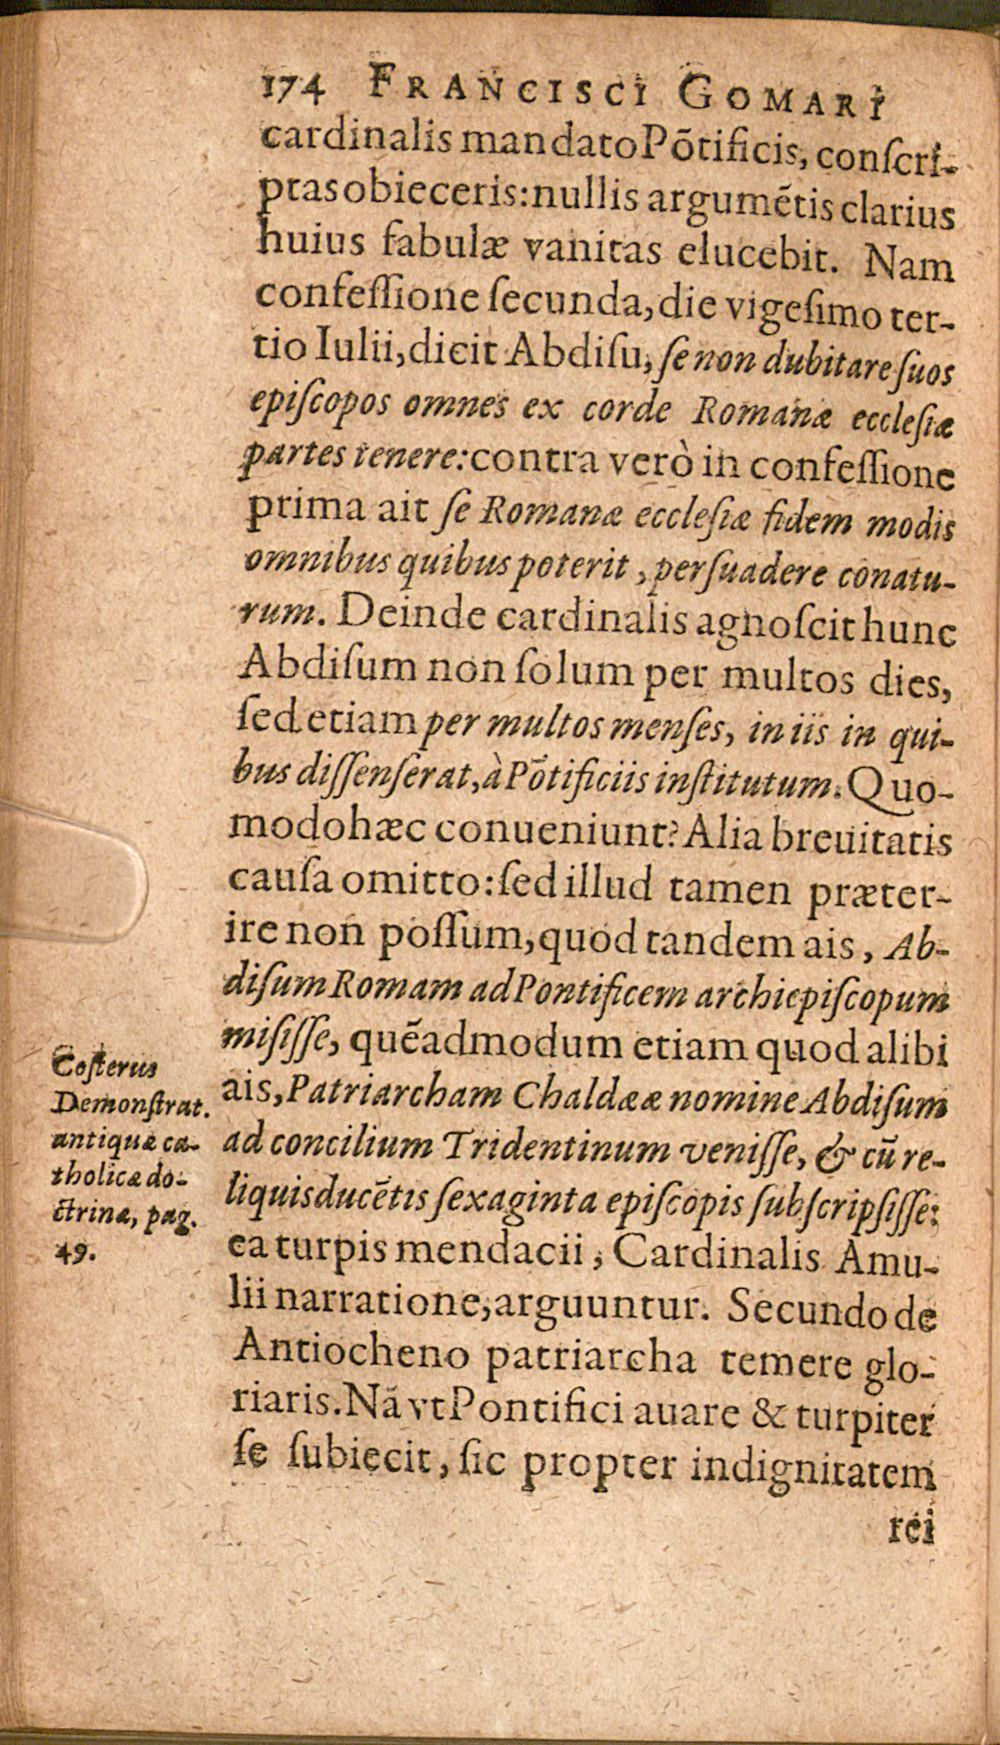 174 FRANCISCI GOMARI
cardinalis mandato Põtificis, conſcri-
ptas obieceris: nullis argumẽtis clarius
huius fabulæ vanitas elucebit. Nam
confeſſione ſecunda, die vigeſimo ter-
tio Iulii, dicit Abdiſu, ſe non dubitare ſuos
epiſcopos omnes ex corde Romanæ eccleſiæ
partes tenere: contra verò in confeſſione
prima ait ſe Romanæ eccleſiæ fidem modis
omnibus quibus poterit, perſuadere conatu-
rum. Deinde cardinalis agnoſcit hunc
Abdiſum non ſolum per multos dies,
ſed etiam per multos menſes, in iis in qui-
bus diſſenſerat, à Põtificiis inſtitutum. Quo-
modo hæc conueniunt? Alia breuitatis
cauſa omitto: ſed illud tamen præter-
ire non poſſum, quod tandem ais, Ab-
diſum Romam ad Pontificem archiepiſcopum
miſiſſe, quẽadmodum etiam quod alibi
ais, Patriarcham Chaldææ nomine Abdiſum
ad concilium Tridentinum veniſſe, & cũ re-
liquis ducẽtis ſexaginta epiſcopis ſubſcripſiſſe:
ea turpis mendacii, Cardinalis Amu-
lii narratione, arguuntur. Secundo de
Antiocheno patriarcha temere glo-
riaris. Nã vt Pontifici auare & turpiter
ſe ſubiecit, ſic propter indignitatem
rei
Coſterus
Demonſtrat.
antiquæ ca-
tholicæ do-
ctrinæ, pag.
49.